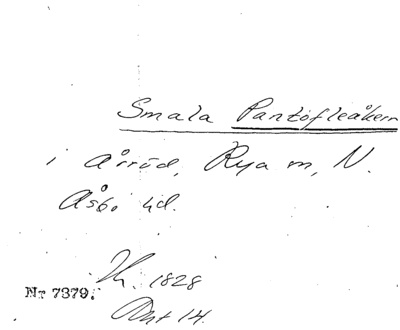 Smala Pantofleåkern
i Årröd, Rya sn, N.
Åsbo hd.
1828
Nr 7379.
Akt 14.